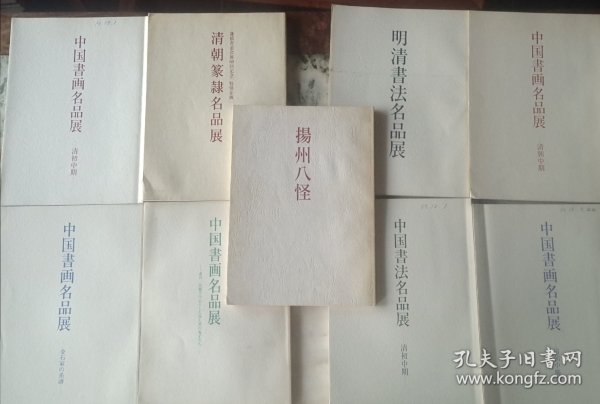 中国書画名品展
清初中期
清朝篆隷名品展
明清書法名品展
中国書画名品展
清朝中期
揚州八怪
中国書画名品展
金石家の系譜
中国書画名品展
中国書法名品展
清初中期
中国書画名品展
孔夫子旧书网
www.kongfz.com